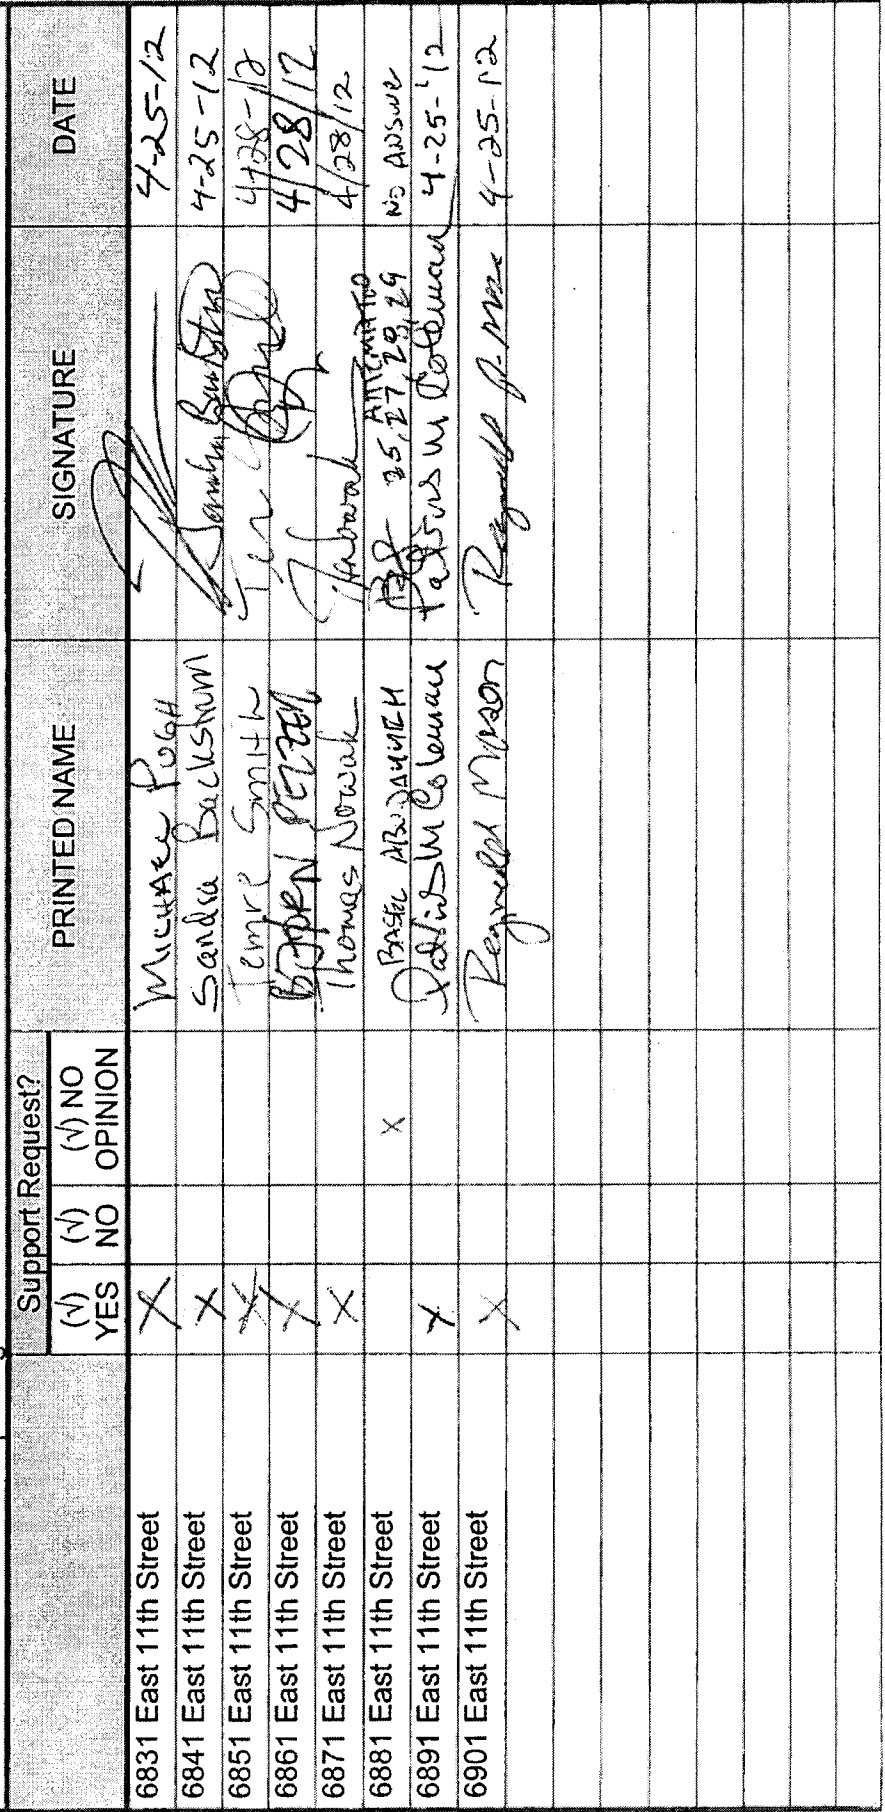 Support Request?
(√) YES (√) NO (√) NO OPINION PRINTED NAME SIGNATURE DATE
6831 East 11th Street X MICHAEL PUGH 4-25-12
6841 East 11th Street X Sandra Backstrum 4-25-12
6851 East 11th Street X Smith 4-28-12
6861 East 11th Street X BJORN PETZEN 4/28/12
6871 East 11th Street X Thomas Nowak 4/28/12
6881 East 11th Street X ATTEMPTED 25, 27, 28, 29 NO ANSWER
6891 East 11th Street X Coleman Coleman 4-25-12
6901 East 11th Street X Reginald Mason 4-25-12